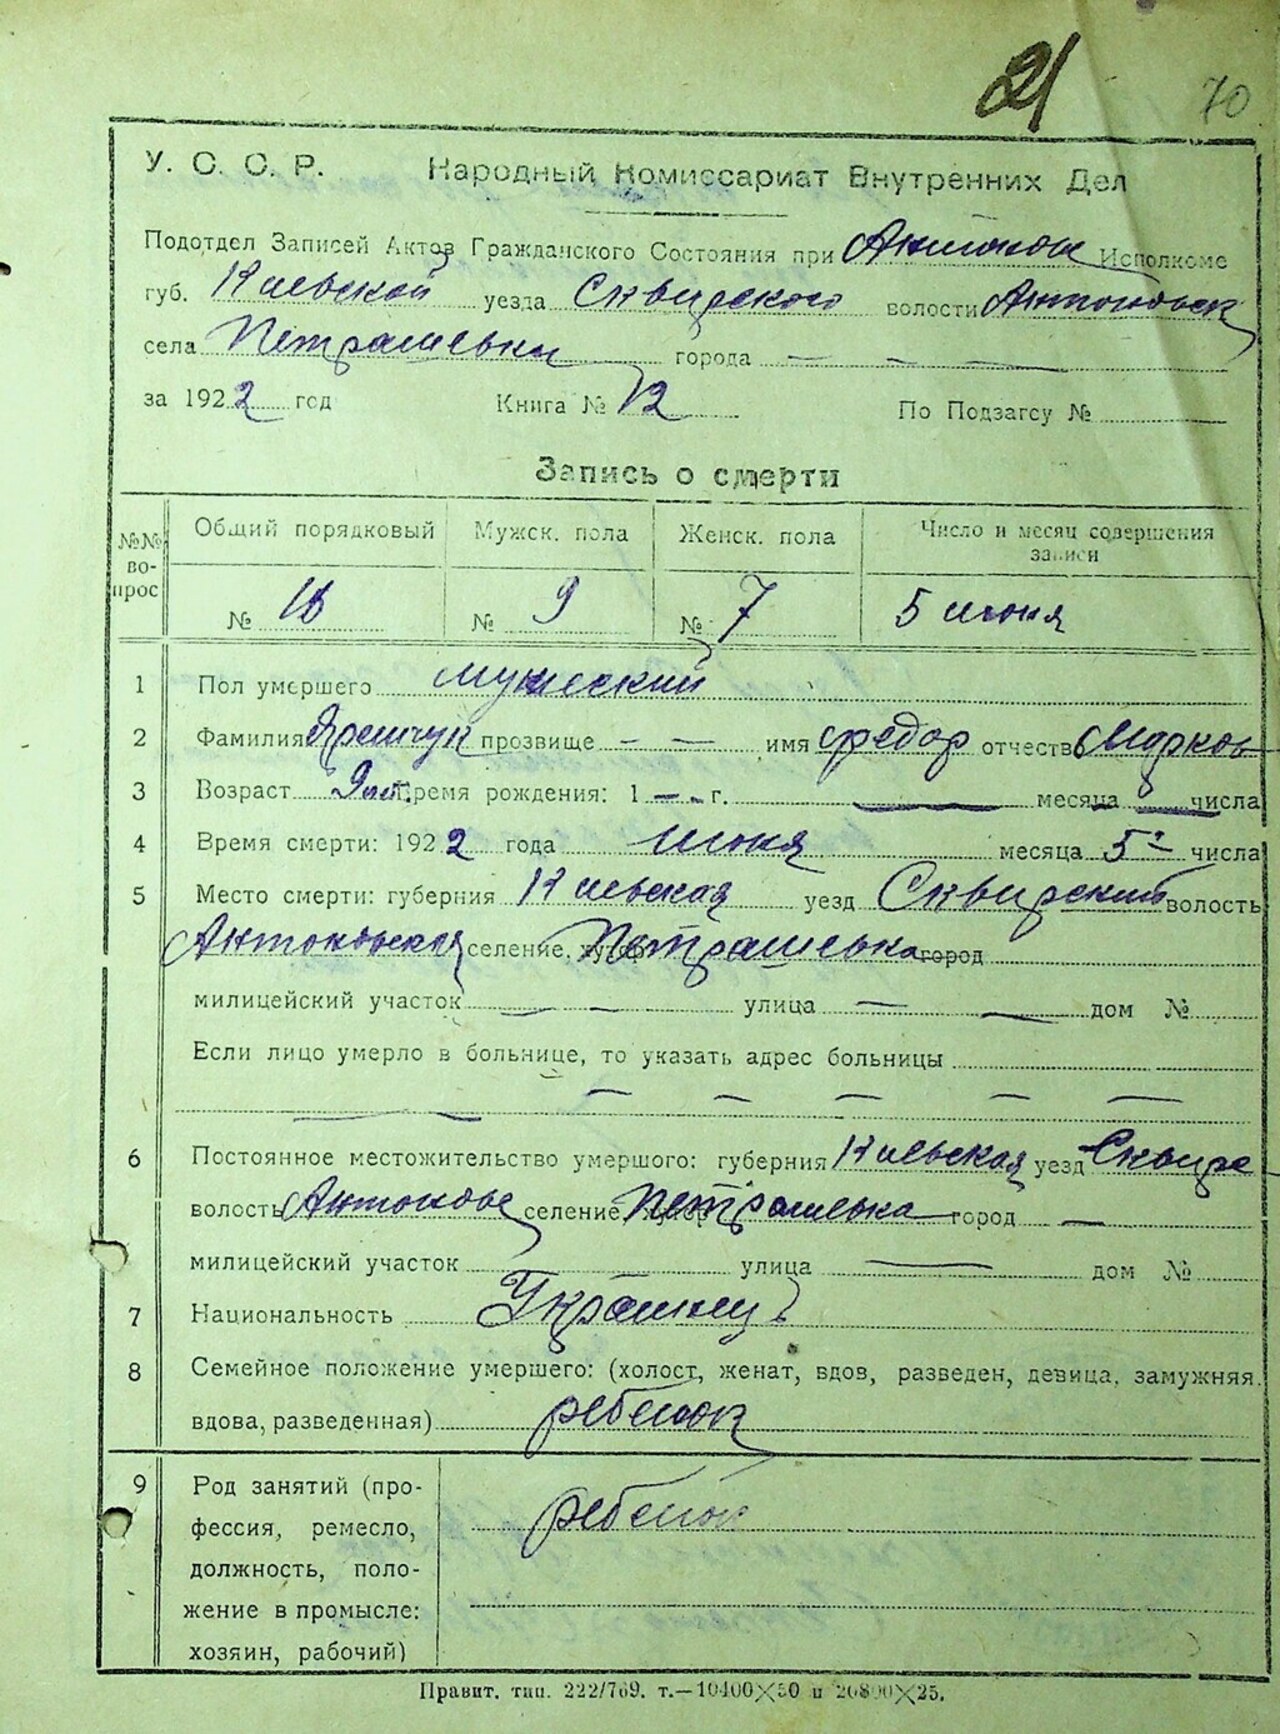 21 70
У. С. С. Р. Народный Комиссариат Внутренних Дел
Подотдел Записей Актов Гражданского Состояния при Антоновс Исполкоме
губ. Киевской уезда Сквирского волости Антоновск
села Петрашевки города — — —
за 1922 год Книга № 12 По Подзагсу №
Запись о смерти
№№ вопрос Общий порядковый Мужск. пола Женск. пола Число и месяц совершения записи
№ 16 № 9 № 7 5 июня
1 Пол умершего мужеский
2 Фамилия Яремчук прозвище — — имя федор отчество Марков
3 Возраст 9 Время рождения: 1 — - г. — месяца — числа
4 Время смерти: 1922 года июня месяца 5 числа
5 Место смерти: губерния Киевская уезд Сквирский волость
Антоновская селение, хутор Петрашевка город
милицейский участок — — улица — — дом №
Если лицо умерло в больнице, то указать адрес больницы
— — — — — — —
6 Постоянное местожительство умершого: губерния Киевская уезд Сквирс
волость Антоновс селение, хутор Петрашевка город —
милицейский участок улица — дом №
7 Национальность Украинец
8 Семейное положение умершего: (холост, женат, вдов, разведен, девица, замужняя,
вдова, разведенная) ребенок
9 Род занятий (про-
фессия, ремесло, ребенок
должность, поло-
жение в промысле:
хозяин, рабочий)
Правит. тип. 222/769. т.—10400×50 и 20800×25.